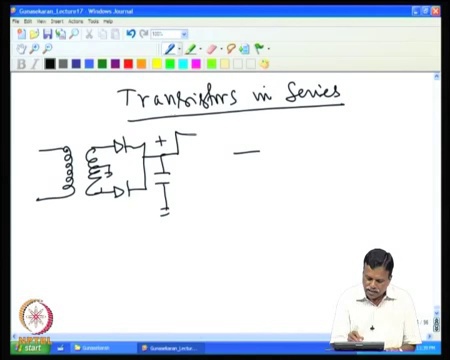 Gunasekaran_Lecture17 - Windows Journal
File Edit View Insert Actions Tools Help
100%
B I
Transistors in Series
+
NPTEL
start
Gunasekaran
Gunasekaran_Lect...